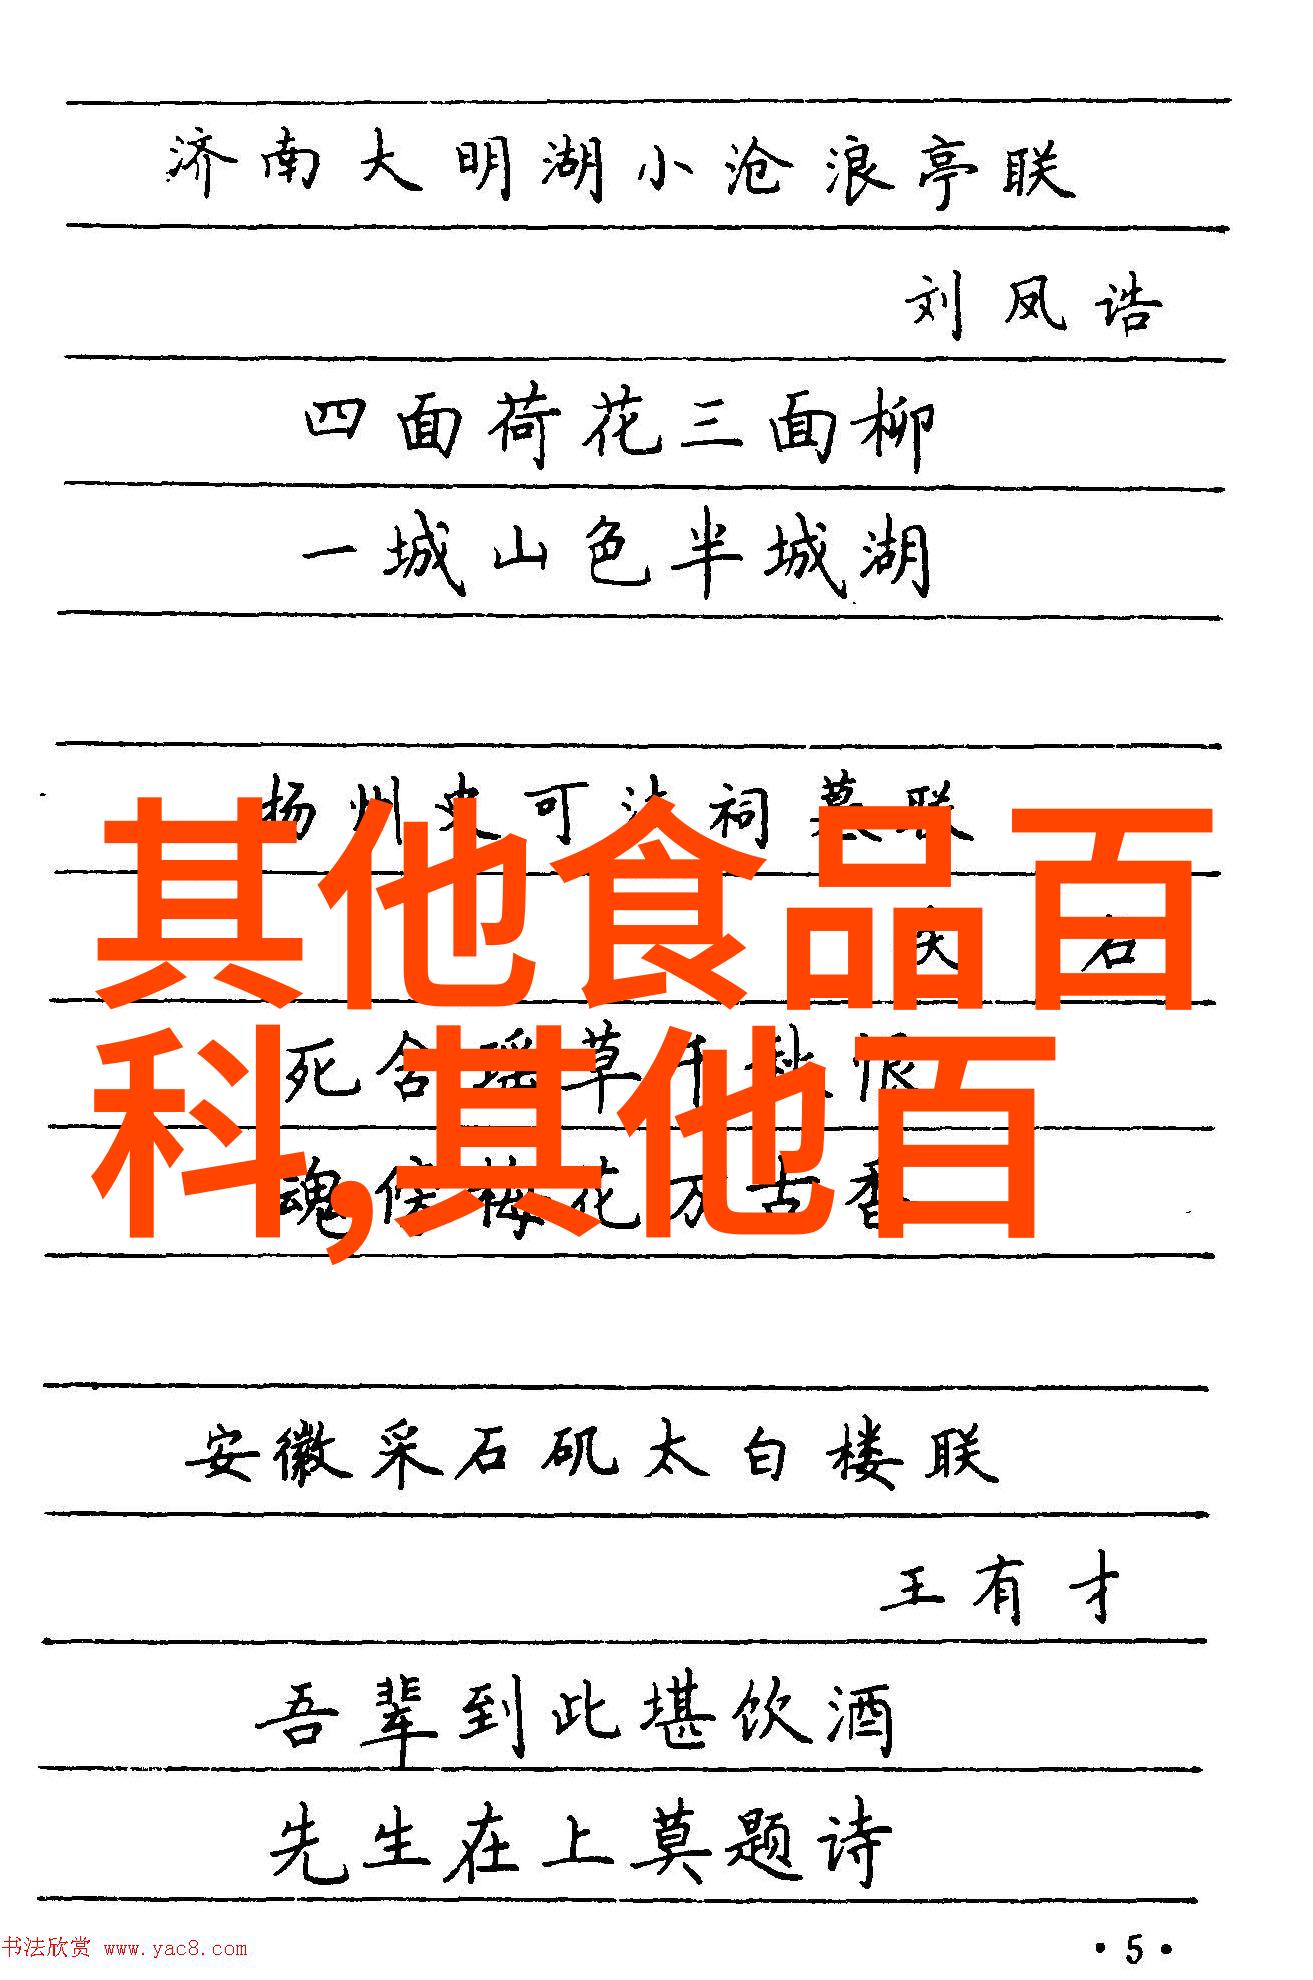 济南大明湖小沧浪亭联
刘凤诰
四面荷花三面柳
一城山色半城湖
扬州史可法祠墓联
其他食品百
死含瑶草千秋恨
科,其他百
魂梅花万古香
安徽采石矶太白楼联
王有才
吾辈到此堪饮酒
先生在上莫题诗
书法欣赏 www.yac8.com
·5·